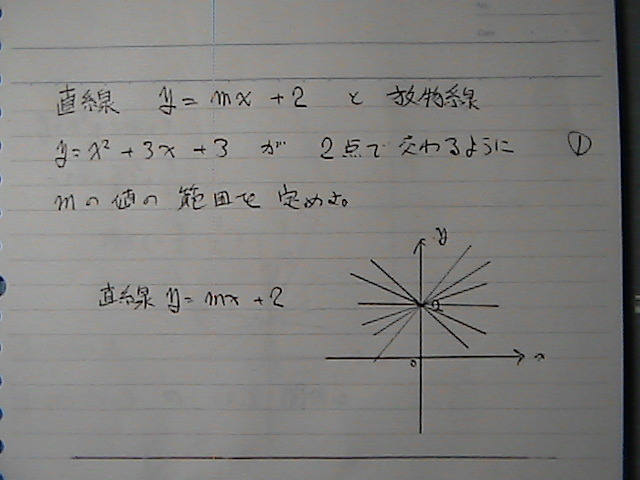 直線 y = mx + 2 と 放物線
y = x² + 3x + 3 が 2点で 交わるように ①
mの値の範囲を定めよ。
y
直線 y = mx + 2
2
0 x